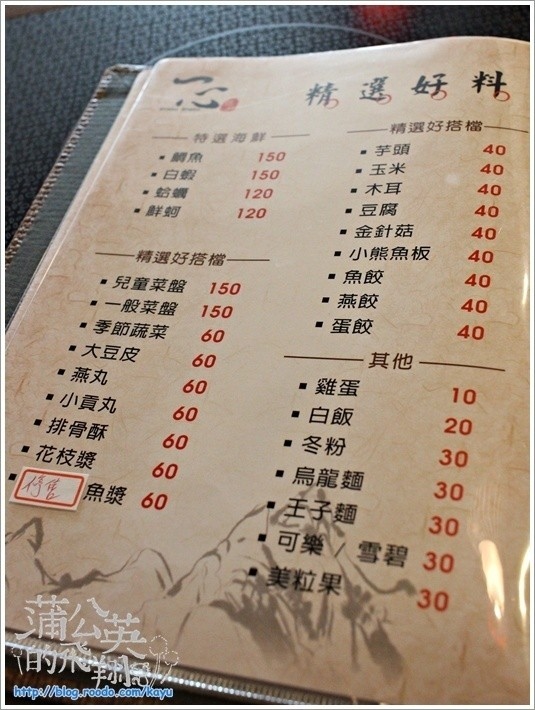 一心
精選好料
特選海鮮
鯛魚 150
白蝦 150
蛤蠣 120
鮮蚵 120
精選好搭檔
兒童菜盤 150
一般菜盤 150
季節蔬菜 60
大豆皮 60
燕丸 60
小貢丸 60
排骨酥 60
花枝漿 60
停售 魚漿 60
精選好搭檔
芋頭 40
玉米 40
木耳 40
豆腐 40
金針菇 40
小熊魚板 40
魚餃 40
燕餃 40
蛋餃 40
其他
雞蛋 10
白飯 20
冬粉 30
烏龍麵 30
王子麵 30
可樂 / 雪碧 30
美粒果 30
蒲公英
的飛翔
http://blog.roodo.com/kayu